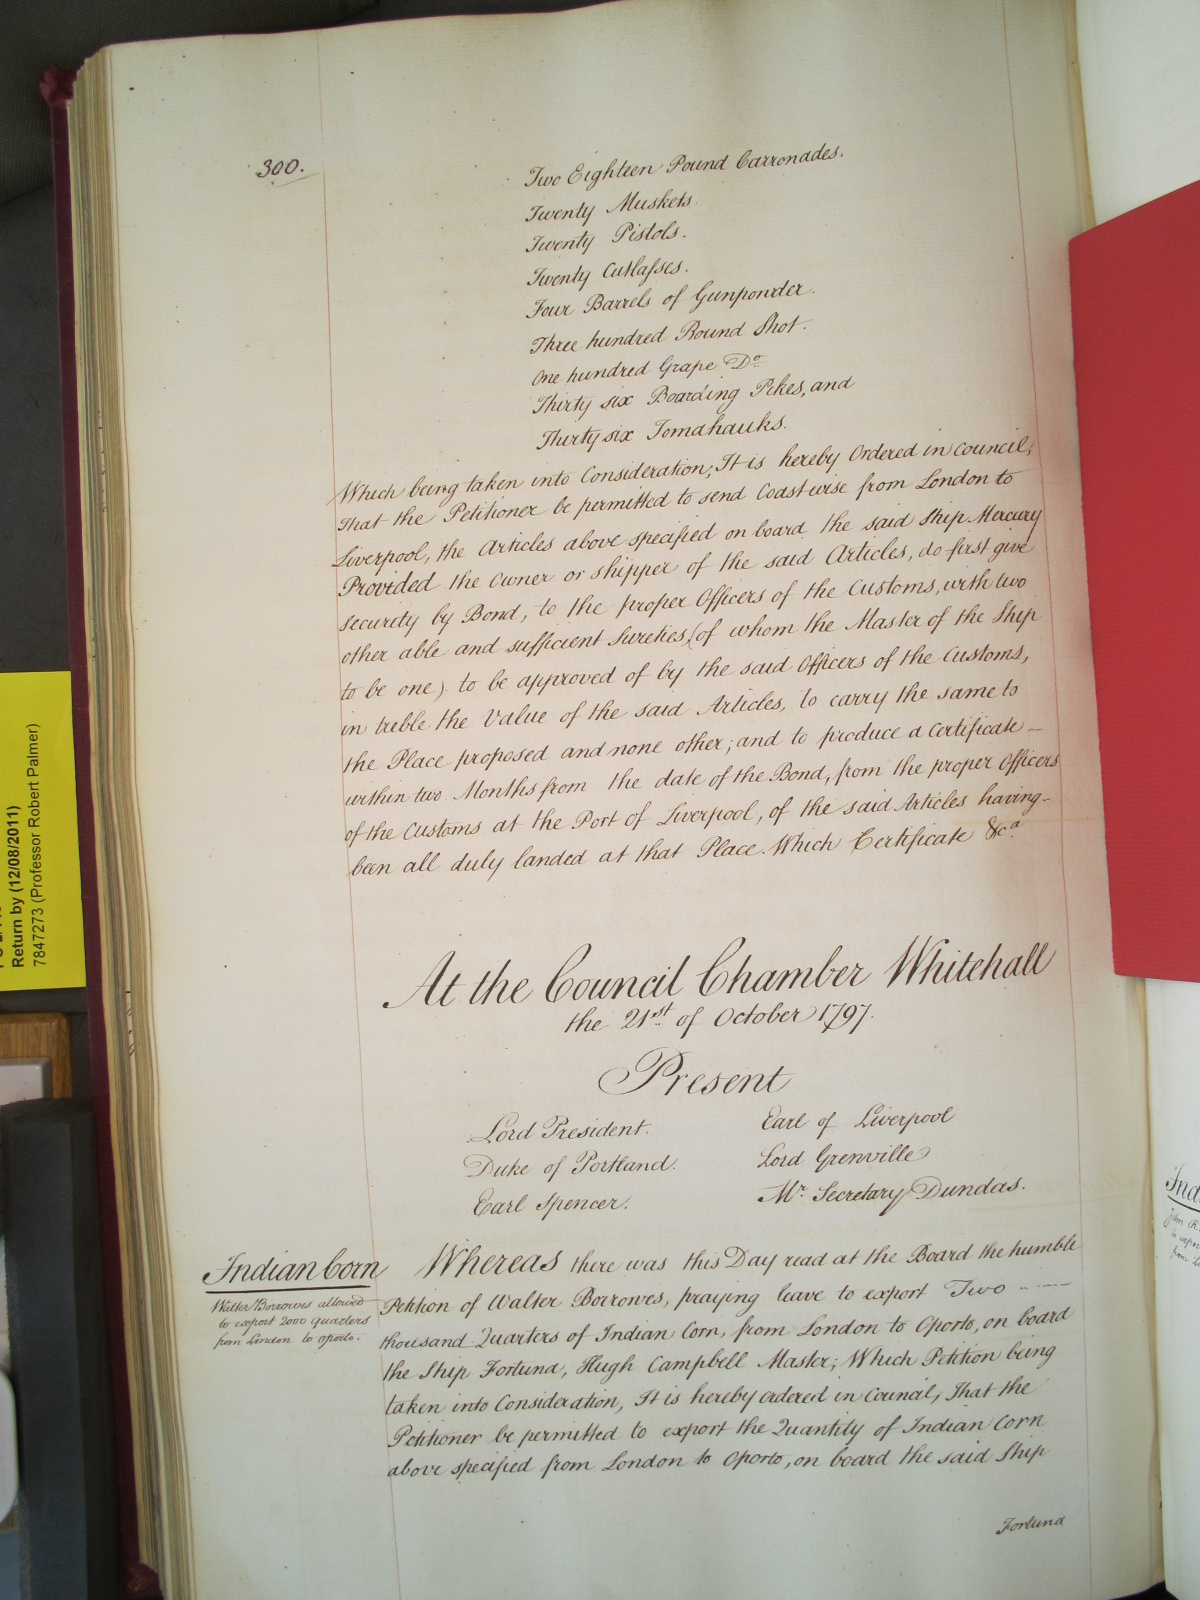 300.
Two Eighteen Pound Carronades.
Twenty Muskets.
Twenty Pistols.
Twenty Cutlasses.
Four Barrels of Gunpowder.
Three hundred Round Shot.
One hundred Grape Do
Thirty six Boarding Pikes, and
Thirty six Tomahauks.
Which being taken into Consideration; It is hereby Ordered in Council,
That the Petitioner be permitted to send Coastwise from London to
Liverpool, the Articles above specified on board the said Ship Mercury
Provided the Owner or shipper of the said Articles, do first give
security by Bond, to the proper Officers of the Customs, with two
other able and sufficient Sureties, (of whom the Master of the Ship
to be one) to be approved of by the said Officers of the Customs,
in treble the Value of the said Articles, to carry the same to
the Place proposed and none other; and to produce a Certificate –
within two Months from the date of the Bond, from the proper Officers
of the Customs at the Port of Liverpool, of the said Articles having –
been all duly landed at that Place. Which Certificate &ca
At the Council Chamber Whitehall
the 21st of October 1797.
Present
Lord President.
Duke of Portland.
Earl Spencer.
Earl of Liverpool
Lord Grenville
Mr. Secretary Dundas.
Indian Corn
Walter Borrowes allowed
to export 2000 quarters
from London to Oporto.
Whereas there was this Day read at the Board the humble
Petition of Walter Borrowes, praying leave to export Two
thousand Quarters of Indian Corn, from London to Oporto, on board
the Ship Fortund, Hugh Campbell Master; Which Petition being
taken into Consideration, It is hereby ordered in Council, That the
Petitioner be permitted to export the Quantity of Indian Corn
above specified from London to Oporto, on board the said Ship
Fortund
Return by (12/08/2011)
7847273 (Professor Robert Palmer)
Ind
John R.